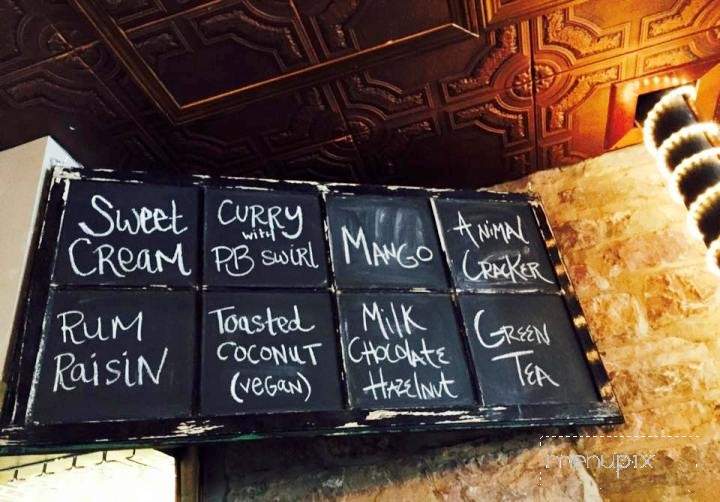 Sweet
CREAM
CURRY
with
PB SWIRL
MANGO
ANIMAL
CRACKER
RUM
RAISIN
TOASTED
COCONUT
(VEGAN)
MILK
CHOCOLATE
HAZELNUT
GREEN
TEA
menupix